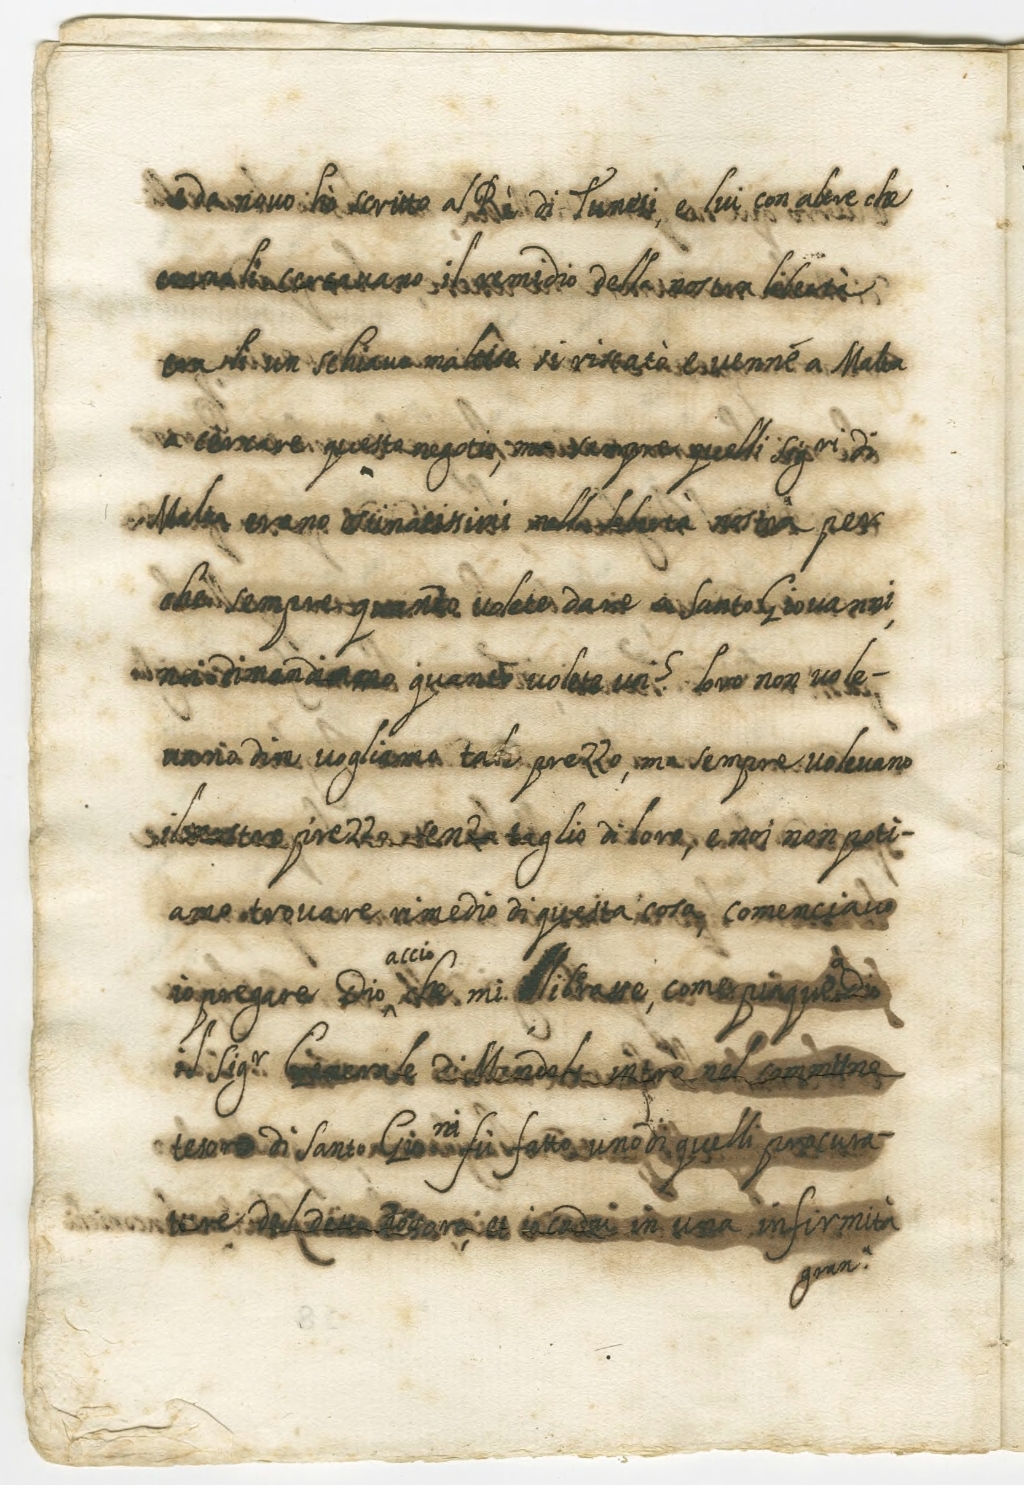 e da novo hò scritto al Rè di Tunesi, e lui con altre che
erano li cercavano il remidio della nostra libertà
era li un schiavo maltese si riscatà e vennè a Malta
a cercare questo negotio, ma sempre quelli sigri di
Malta erano ostinatissimi nella libertà nostra per
che sempre quanto volete dare a Santo Giovanni,
noi dimandiamo quanto volete voi? loro non vole-
vano dire vogliamo tale prezzo, ma sempre volevano
il nostro prezzo senza taglio di loro, e noi non poti-
amo trovare rimedio di questa cosa, comenciavo
io pregare Dio acciò che mi liberasse, come piaque a Dio
il Sigr Generale di intrò nel commune
tesoro di Santo Gioni fù fatto uno di quelli procura-
tore del detto tesoro, et io cadei in una infirmità
gran